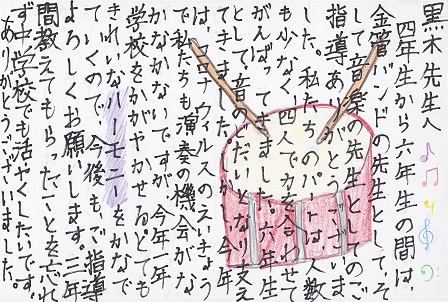 黒木先生へ
四年生から六年生の間は、
金管バンドの先生として、そ
して音楽の先生としてのご
指導ありがとうございま
した。私たちのパートは人数
も少なく、四人で力を合わせて
がんばってきました。六年生
として、音のどだいとなり支え
てきましたが、今年
はコロナウィルスのえいきょう
で私たちも演奏の機会がな
かなかないですが、今年一年
学校をかがやかせるとても
きれいなハーモニーをかなで
ていくので、今後もご指導
よろしくお願いします。三年
間教えてもらったことを忘れ
ず中学校でも活やくしたいです。
ありがとうございました。